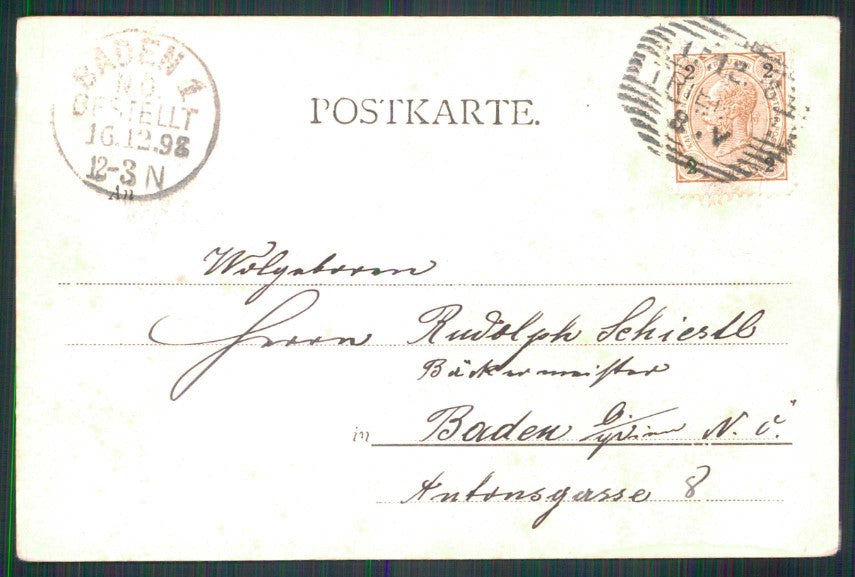 BADEN 1
N Ö
BESTELLT
16.12.98
12-3 N
POSTKARTE.
2 2
2 2
An
Wolgeboren
Herrn Rudolph Schiestl
Bäckermeister
in Baden N. Ö.
Antonsgasse 8